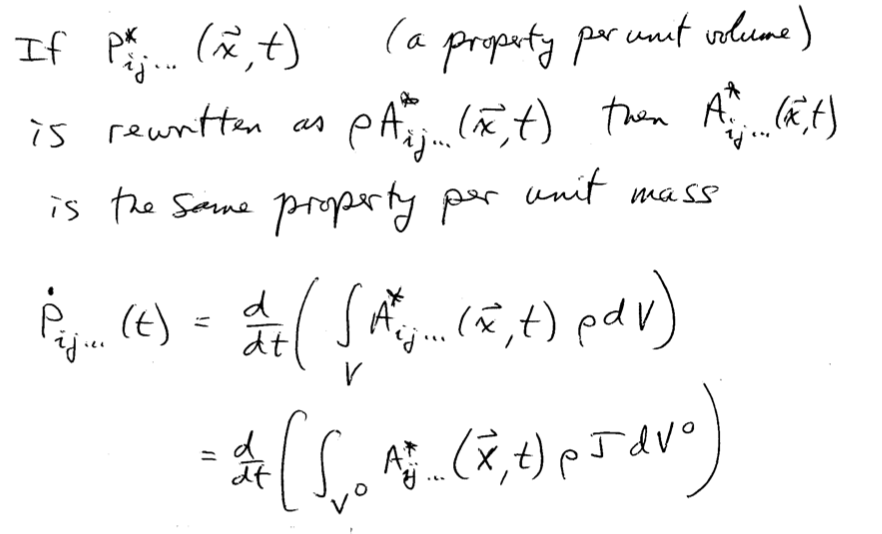 If P*ij... (x⃗,t) (a property per unit volume)
is rewritten as ρA*ij...(x⃗,t) then A*ij...(x⃗,t)
is the same property per unit mass
Ṗij... (t) = d/dt( ∫V A*ij... (x⃗,t) ρdV)
= d/dt( ∫V° A*ij...(x⃗,t) ρJdV°)